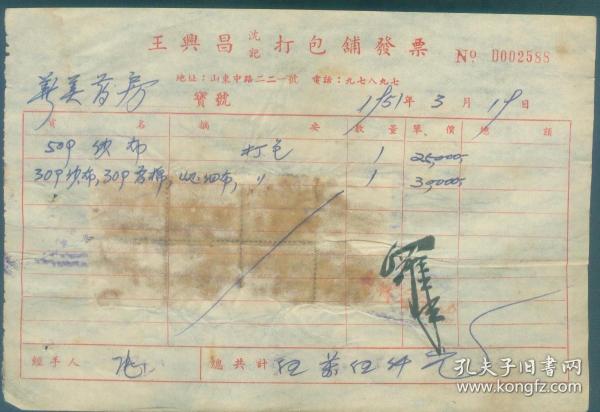 王興昌沈記打包舖發票 No D002588
地址：山東中路二二一號 電話：九七八九七
新美药房 寶號 1951年3月19日
貨名 摘要 數量 單價 總額
509 纱布 打包 1 25,000-
309 纱布, 309 〃 1 30,000-
經手人 總共計 伍萬伍仟元
孔夫子旧书网
www.kongfz.com